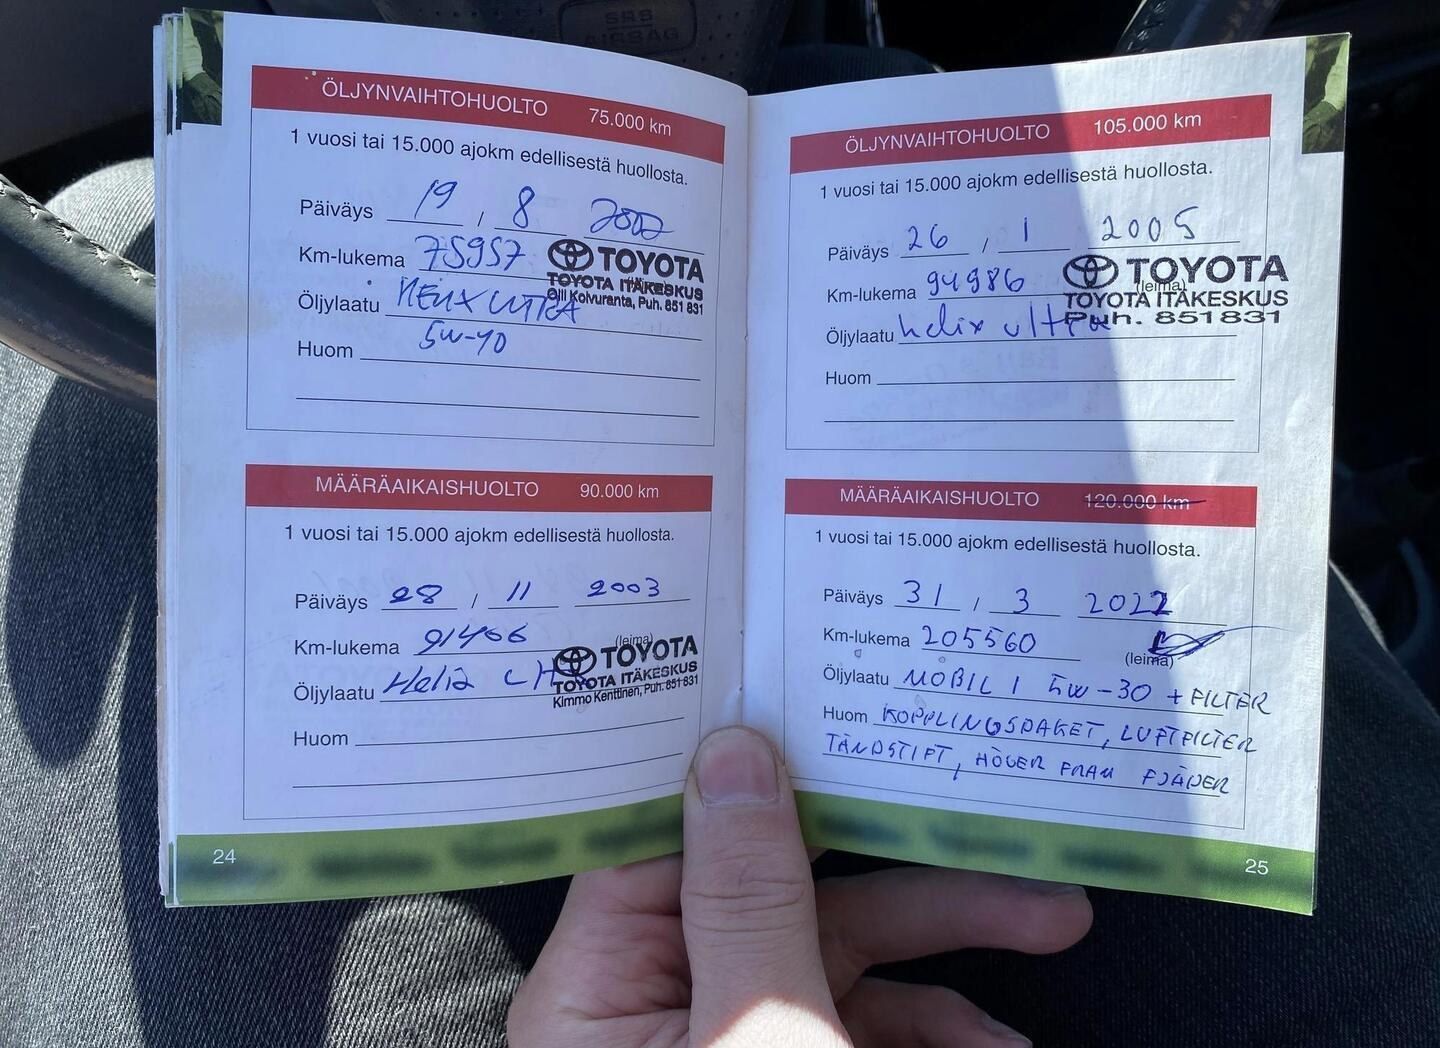 SRS
AIRBAG
ÖLJYNVAIHTOHUOLTO 75.000 km
1 vuosi tai 15.000 ajokm edellisestä huollosta.
Päiväys 19 / 8 2002
Km-lukema 75957
TOYOTA
TOYOTA ITÄKESKUS
Olli Koivuranta, Puh. 851 831
Öljylaatu HELIX ULTRA
5W-40
Huom
MÄÄRÄAIKAISHUOLTO 90.000 km
1 vuosi tai 15.000 ajokm edellisestä huollosta.
Päiväys 28 / 11 2003
Km-lukema 91406 (leima)
TOYOTA
TOYOTA ITÄKESKUS
Kimmo Kenttinen, Puh. 851 831
Öljylaatu Helix
Huom
24
ÖLJYNVAIHTOHUOLTO 105.000 km
1 vuosi tai 15.000 ajokm edellisestä huollosta.
Päiväys 26 / 1 2005
Km-lukema 94986 (leima)
TOYOTA
TOYOTA ITÄKESKUS
Puh. 851831
Öljylaatu helix ultra
Huom
MÄÄRÄAIKAISHUOLTO 120.000 km
1 vuosi tai 15.000 ajokm edellisestä huollosta.
Päiväys 31 / 3 2022
Km-lukema 205560 (leima)
Öljylaatu MOBIL 1 5W-30 + FILTER
Huom KOPPLINGSPAKET, LUFTFILTER
TÄNDSTIFT, HÖGER FRAM FJÄDER
25